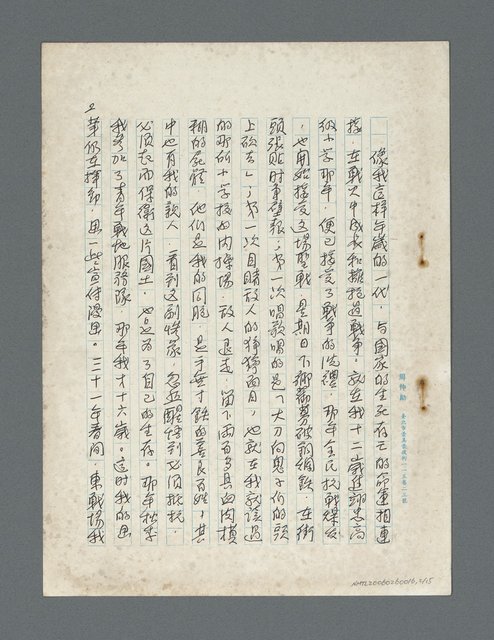 像我這樣年歲的一代，與國家的生死存亡的命運相連
接，在戰火中成長和擁抱過戰爭。就在我十二歲進翊忠高
級小学那年，便已接受了戰爭的洗禮。那年全民抗戰爆发
，也開始接受這場聖戰，星期日下鄉募破銅爛鉄，在街
頭張貼时事壁報；第一次唱歌唱的是「大刀向鬼子们的頭
上砍去」；第一次目睹敌人的猙獰面目，也就在我就讀过
的那所小学校的内操場，敌人退走，留下兩百多具血肉模
糊的死體，他们是我的同胞，是手無寸鉄的善良百姓，其
中也有我的親人。看到这副情景，忽然醒悟到必須抵抗，
必須起而保衛这片國土，也是为了自己的生存。那年秋季
我参加了青年戰地服務隊，那年我才十六歲。这时我的思
三十一年春間，東戰場我
2
周伯乃
NMTL20060260016, 2/15